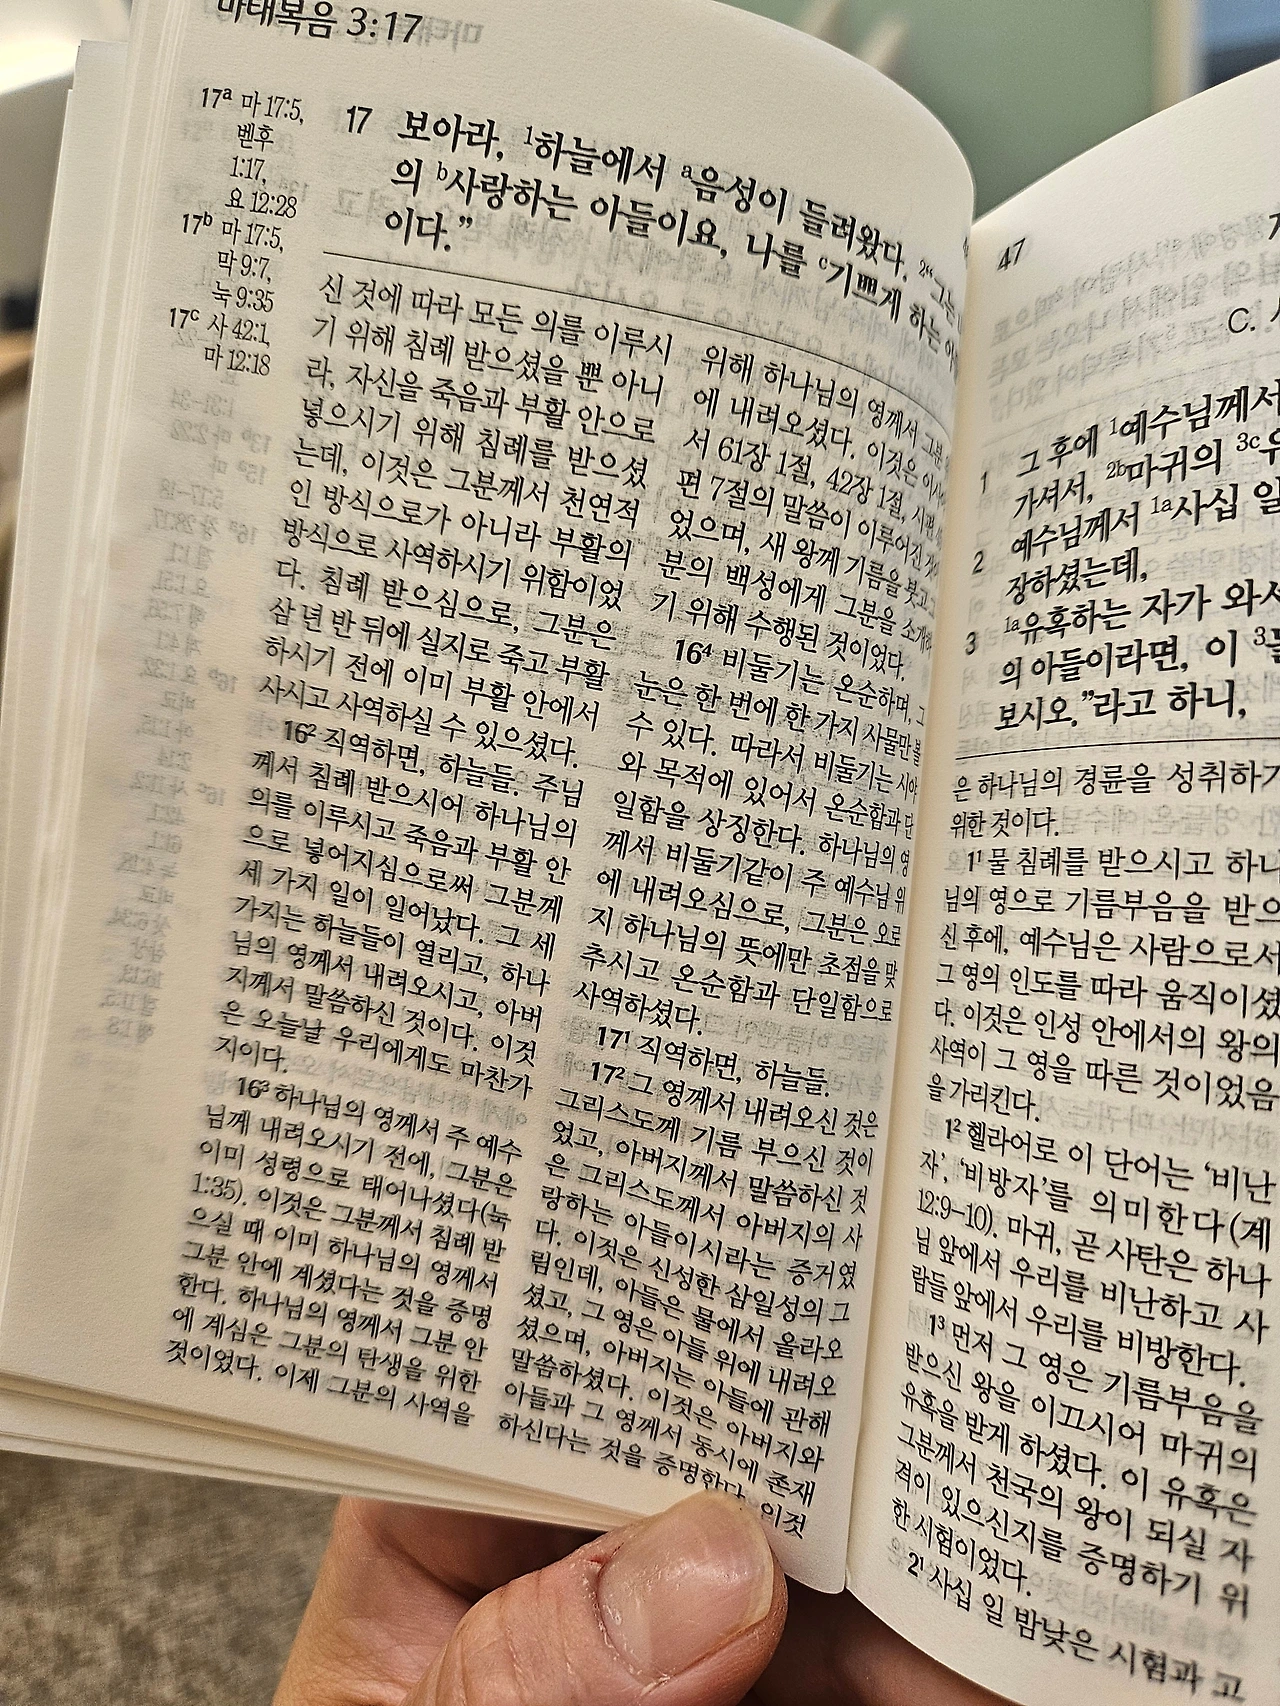 마태복음 3:17
17ᵃ 마 17:5,
벧후
1:17,
요 12:28
17ᵇ 마 17:5,
막 9:7,
눅 9:35
17ᶜ 사 42:1,
마 12:18
17 보아라, ¹하늘에서 ᵃ음성이 들려왔다. ²“그는
의 ᵇ사랑하는 아들이요, 나를 ᶜ기쁘게 하는
이다.”
신 것에 따라 모든 의를 이루시
기 위해 침례 받으셨을 뿐 아니
라, 자신을 죽음과 부활 안으로
넣으시기 위해 침례를 받으셨
는데, 이것은 그분께서 천연적
인 방식으로가 아니라 부활의
방식으로 사역하시기 위함이었
다. 침례 받으심으로, 그분은
삼 년 반 뒤에 실지로 죽고 부활
하시기 전에 이미 부활 안에서
사시고 사역하실 수 있으셨다.
16² 직역하면, 하늘들. 주님
께서 침례 받으시어 하나님의
의를 이루시고 죽음과 부활 안
으로 넣어지심으로써 그분께
세 가지 일이 일어났다. 그 세
가지는 하늘들이 열리고, 하나
님의 영께서 내려오시고, 아버
지께서 말씀하신 것이다. 이것
은 오늘날 우리에게도 마찬가
지이다.
16³ 하나님의 영께서 주 예수
님께 내려오시기 전에, 그분은
이미 성령으로 태어나셨다(눅
1:35). 이것은 그분께서 침례 받
으실 때 이미 하나님의 영께서
그분 안에 계셨다는 것을 증명
한다. 하나님의 영께서 그분 안
에 계심은 그분의 탄생을 위한
것이었다. 이제 그분의 사역을
위해 하나님의 영께서 그분
에 내려오셨다. 이것은
서 61장 1절, 42장 1절, 시편
편 7절의 말씀이 이루어진
었으며, 새 왕께 기름을 붓고
분의 백성에게 그분을 소개하
기 위해 수행된 것이었다.
16⁴ 비둘기는 온순하며, 그
눈은 한 번에 한 가지 사물만 볼
수 있다. 따라서 비둘기는 시야
와 목적에 있어서 온순함과 단
일함을 상징한다. 하나님의 영
께서 비둘기같이 주 예수님 위
에 내려오심으로, 그분은 오로
지 하나님의 뜻에만 초점을 맞
추시고 온순함과 단일함으로
사역하셨다.
17¹ 직역하면, 하늘들.
17² 그 영께서 내려오신 것은
그리스도께 기름 부으신 것이
었고, 아버지께서 말씀하신 것
은 그리스도께서 아버지의 사
랑하는 아들이시라는 증거였
다. 이것은 신성한 삼일성의 그
림인데, 아들은 물에서 올라오
셨고, 그 영은 아들 위에 내려오
셨으며, 아버지는 아들에 관해
말씀하셨다. 이것은 아버지와
아들과 그 영께서 동시에 존재
하신다는 것을 증명한다. 이것
47
C.
1 그 후에 ¹예수님께서
가셔서, ²ᵇ마귀의 ³ᶜ
2 예수님께서 ¹ᵃ사십 일
장하셨는데,
3 ¹ᵃ유혹하는 자가 와서
의 아들이라면, 이 ³
보시오.”라고 하니,
은 하나님의 경륜을 성취하기
위한 것이다.
1¹ 물 침례를 받으시고 하나
님의 영으로 기름부음을 받으
신 후에, 예수님은 사람으로서
그 영의 인도를 따라 움직이셨
다. 이것은 인성 안에서의 왕의
사역이 그 영을 따른 것이었음
을 가리킨다.
1² 헬라어로 이 단어는 ‘비난
자’, ‘비방자’를 의미한다(계
12:9-10). 마귀, 곧 사탄은 하나
님 앞에서 우리를 비난하고 사
람들 앞에서 우리를 비방한다.
1³ 먼저 그 영은 기름부음을
받으신 왕을 이끄시어 마귀의
유혹을 받게 하셨다. 이 유혹은
그분께서 천국의 왕이 되실 자
격이 있으신지를 증명하기 위
한 시험이었다.
2¹ 사십 일 밤낮은 시험과 고